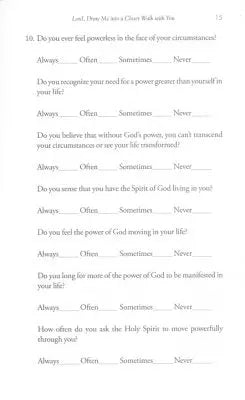 Lord, Draw Me into a Closer Walk with You 15
10. Do you ever feel powerless in the face of your circumstances?
Always_____ Often_____ Sometimes_____ Never_____
Do you recognize your need for a power greater than yourself in
your life?
Always_____ Often_____ Sometimes_____ Never_____
Do you believe that without God's power, you can't transcend
your circumstances or see your life transformed?
Always_____ Often_____ Sometimes_____ Never_____
Do you sense that you have the Spirit of God living in you?
Always_____ Often_____ Sometimes_____ Never_____
Do you feel the power of God moving in your life?
Always_____ Often_____ Sometimes_____ Never_____
Do you long for more of the power of God to be manifested in
your life?
Always_____ Often_____ Sometimes_____ Never_____
How often do you ask the Holy Spirit to move powerfully
through you?
Always_____ Often_____ Sometimes_____ Never_____